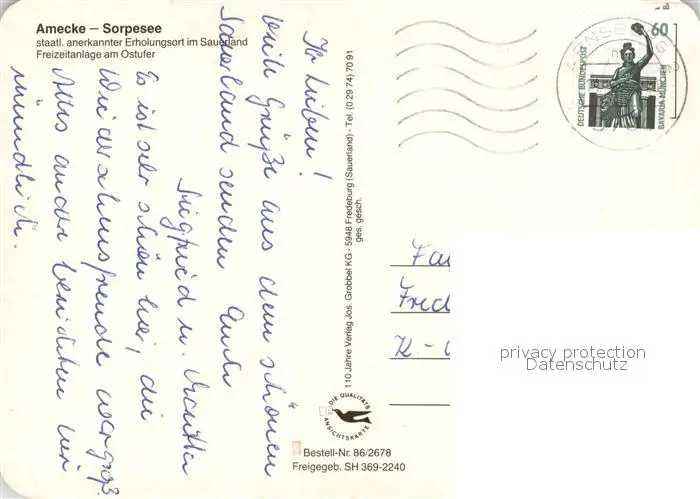 Amecke – Sorpesee
staatl. anerkannter Erholungsort im Sauerland
Freizeitanlage am Ostufer
Ihr Lieben!
viele Grüße aus dem schönen
Sauerland senden Euch
Siegfried u.
Es ist sehr schön hier, die
Wiedersehensfreude war groß.
Alles andere berichten wir
mündlich.
110 Jahre Verlag Jos. Grobbel KG - 5948 Fredeburg (Sauerland) - Tel. (0 29 74) 70 91
ges. gesch.
DIE QUALITÄTS
ANSICHTSKARTE
Bestell-Nr. 86/2678
Freigegeb. SH 369-2240
60
DEUTSCHE BUNDESPOST
BAVARIA MÜNCHEN
Fa
Fried
privacy protection
Datenschutz